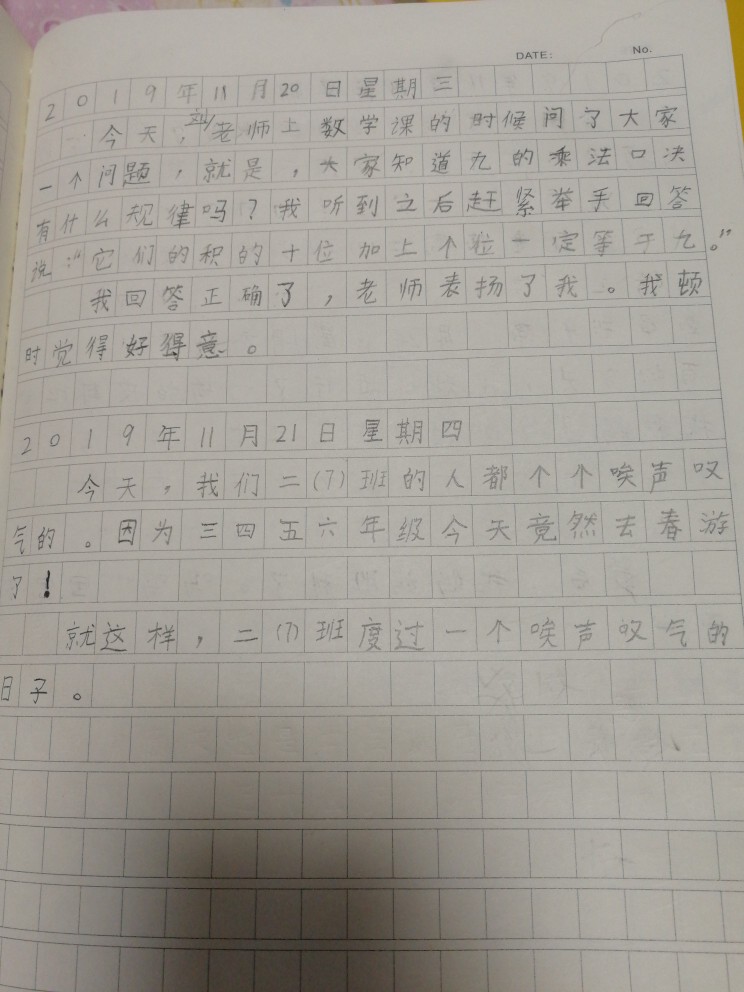 DATE: No.
2019年11月20日星期三
今天,刘老师上数学课的时候问了大家
一个问题,就是,大家知道九的乘法口决
有什么规律吗?我听到之后赶紧举手回答
说:“它们的积的十位加上个粒一定等于九。”
我回答正确了,老师表扬了我。我顿
时觉得好得意。
2019年11月21日星期四
今天,我们二(7)班的人都个个唉声叹
气的。因为三四五六年级今天竟然去春游
了!
就这样,二(7)班度过一个唉声叹气的
日子。